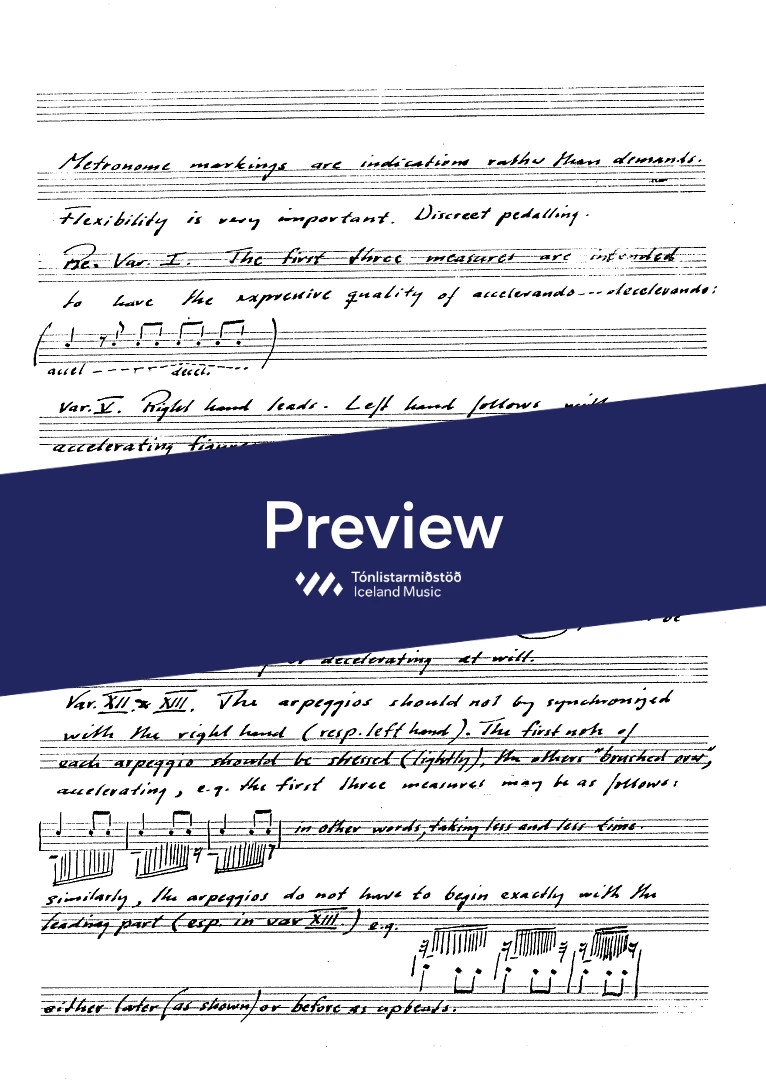 Metronome markings are indications rather than demands.
Flexibility is very important. Discreet pedalling.
Re. Var. I. The first three measures are intended
to have the expressive quality of accelerando --- decelerando:
accel ------- decel. ---
Var. V. Right hand leads. Left hand follows with
accelerating
Preview
Tónlistarmiðstöð
Iceland Music
be
or decelerating at will.
Var. XII. & XIII. The arpeggios should not by synchronized
with the right hand (resp. left hand). The first note of
each arpeggio should be stressed (lightly), the others "brushed over",
accelerating, e.g. the first three measures may be as follows:
in other words, taking less and less time.
similarly, the arpeggios do not have to begin exactly with the
leading part (esp. in var XIII.) e.g.
either later (as shown) or before as upbeats.